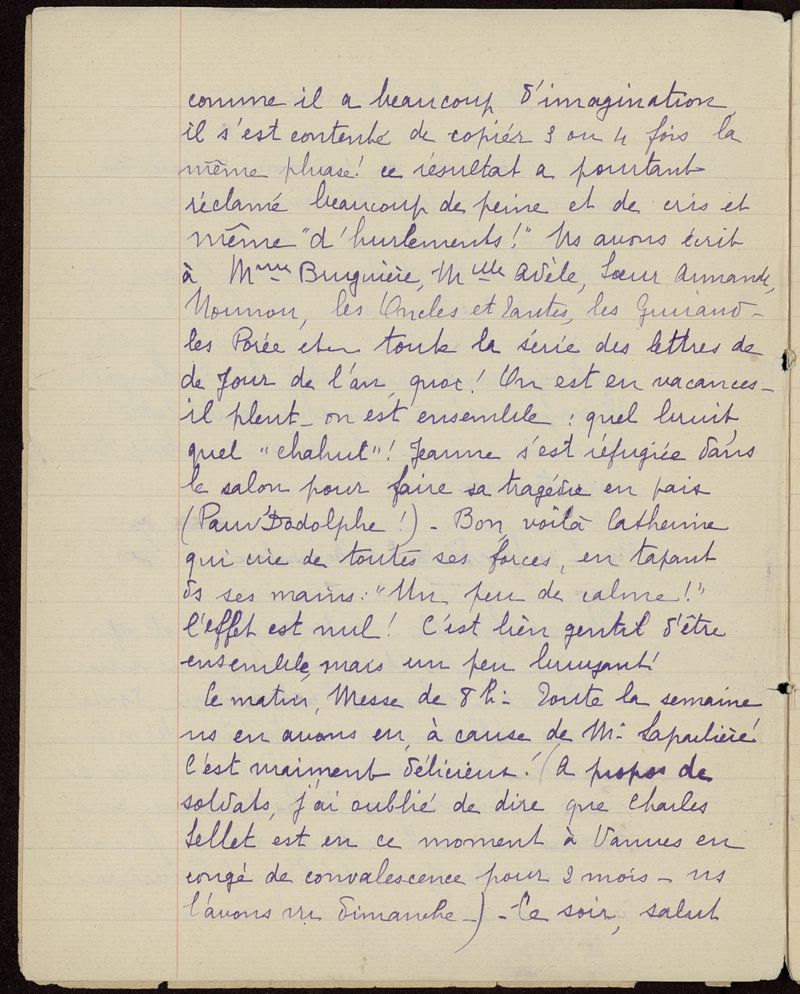 comme il a beaucoup d'imagination,
il s'est contenté de copier 3 ou 4 fois la
même phrase! ce résultat a pourtant
réclamé beaucoup de peine et de cris et
même "d'hurlements!" Ns avons écrit
à Mme Bruguière, Mlle Adèle, Sœur Armande,
Nounou, les Oncles et Tantes, les Guiraud -
les Porée etc toute la série des lettres de
de Jour de l'an, quoi! On est en vacances -
il pleut - on est ensemble : quel bruit,
quel "chahut"! Jeanne s'est réfugiée dans
le salon pour faire sa tragédie en paix
(Pauv' Dodolphe!) - Bon, voilà Catherine
qui crie de toutes ses forces, en tapant
ds ses mains: "Un peu de calme!"
l'effet est nul! C'est bien gentil d'être
ensemble, mais un peu bruyant!
Ce matin, Messe de 8h - Toute la semaine
ns en avons en, à cause de Mr
C'est vraiment délicieux! (A propos de
soldats, j'ai oublié de dire que Charles
Sellet est en ce moment à Vannes en
congé de convalescence pour 2 mois - ns
l'avons vu dimanche -) - Ce soir, salut